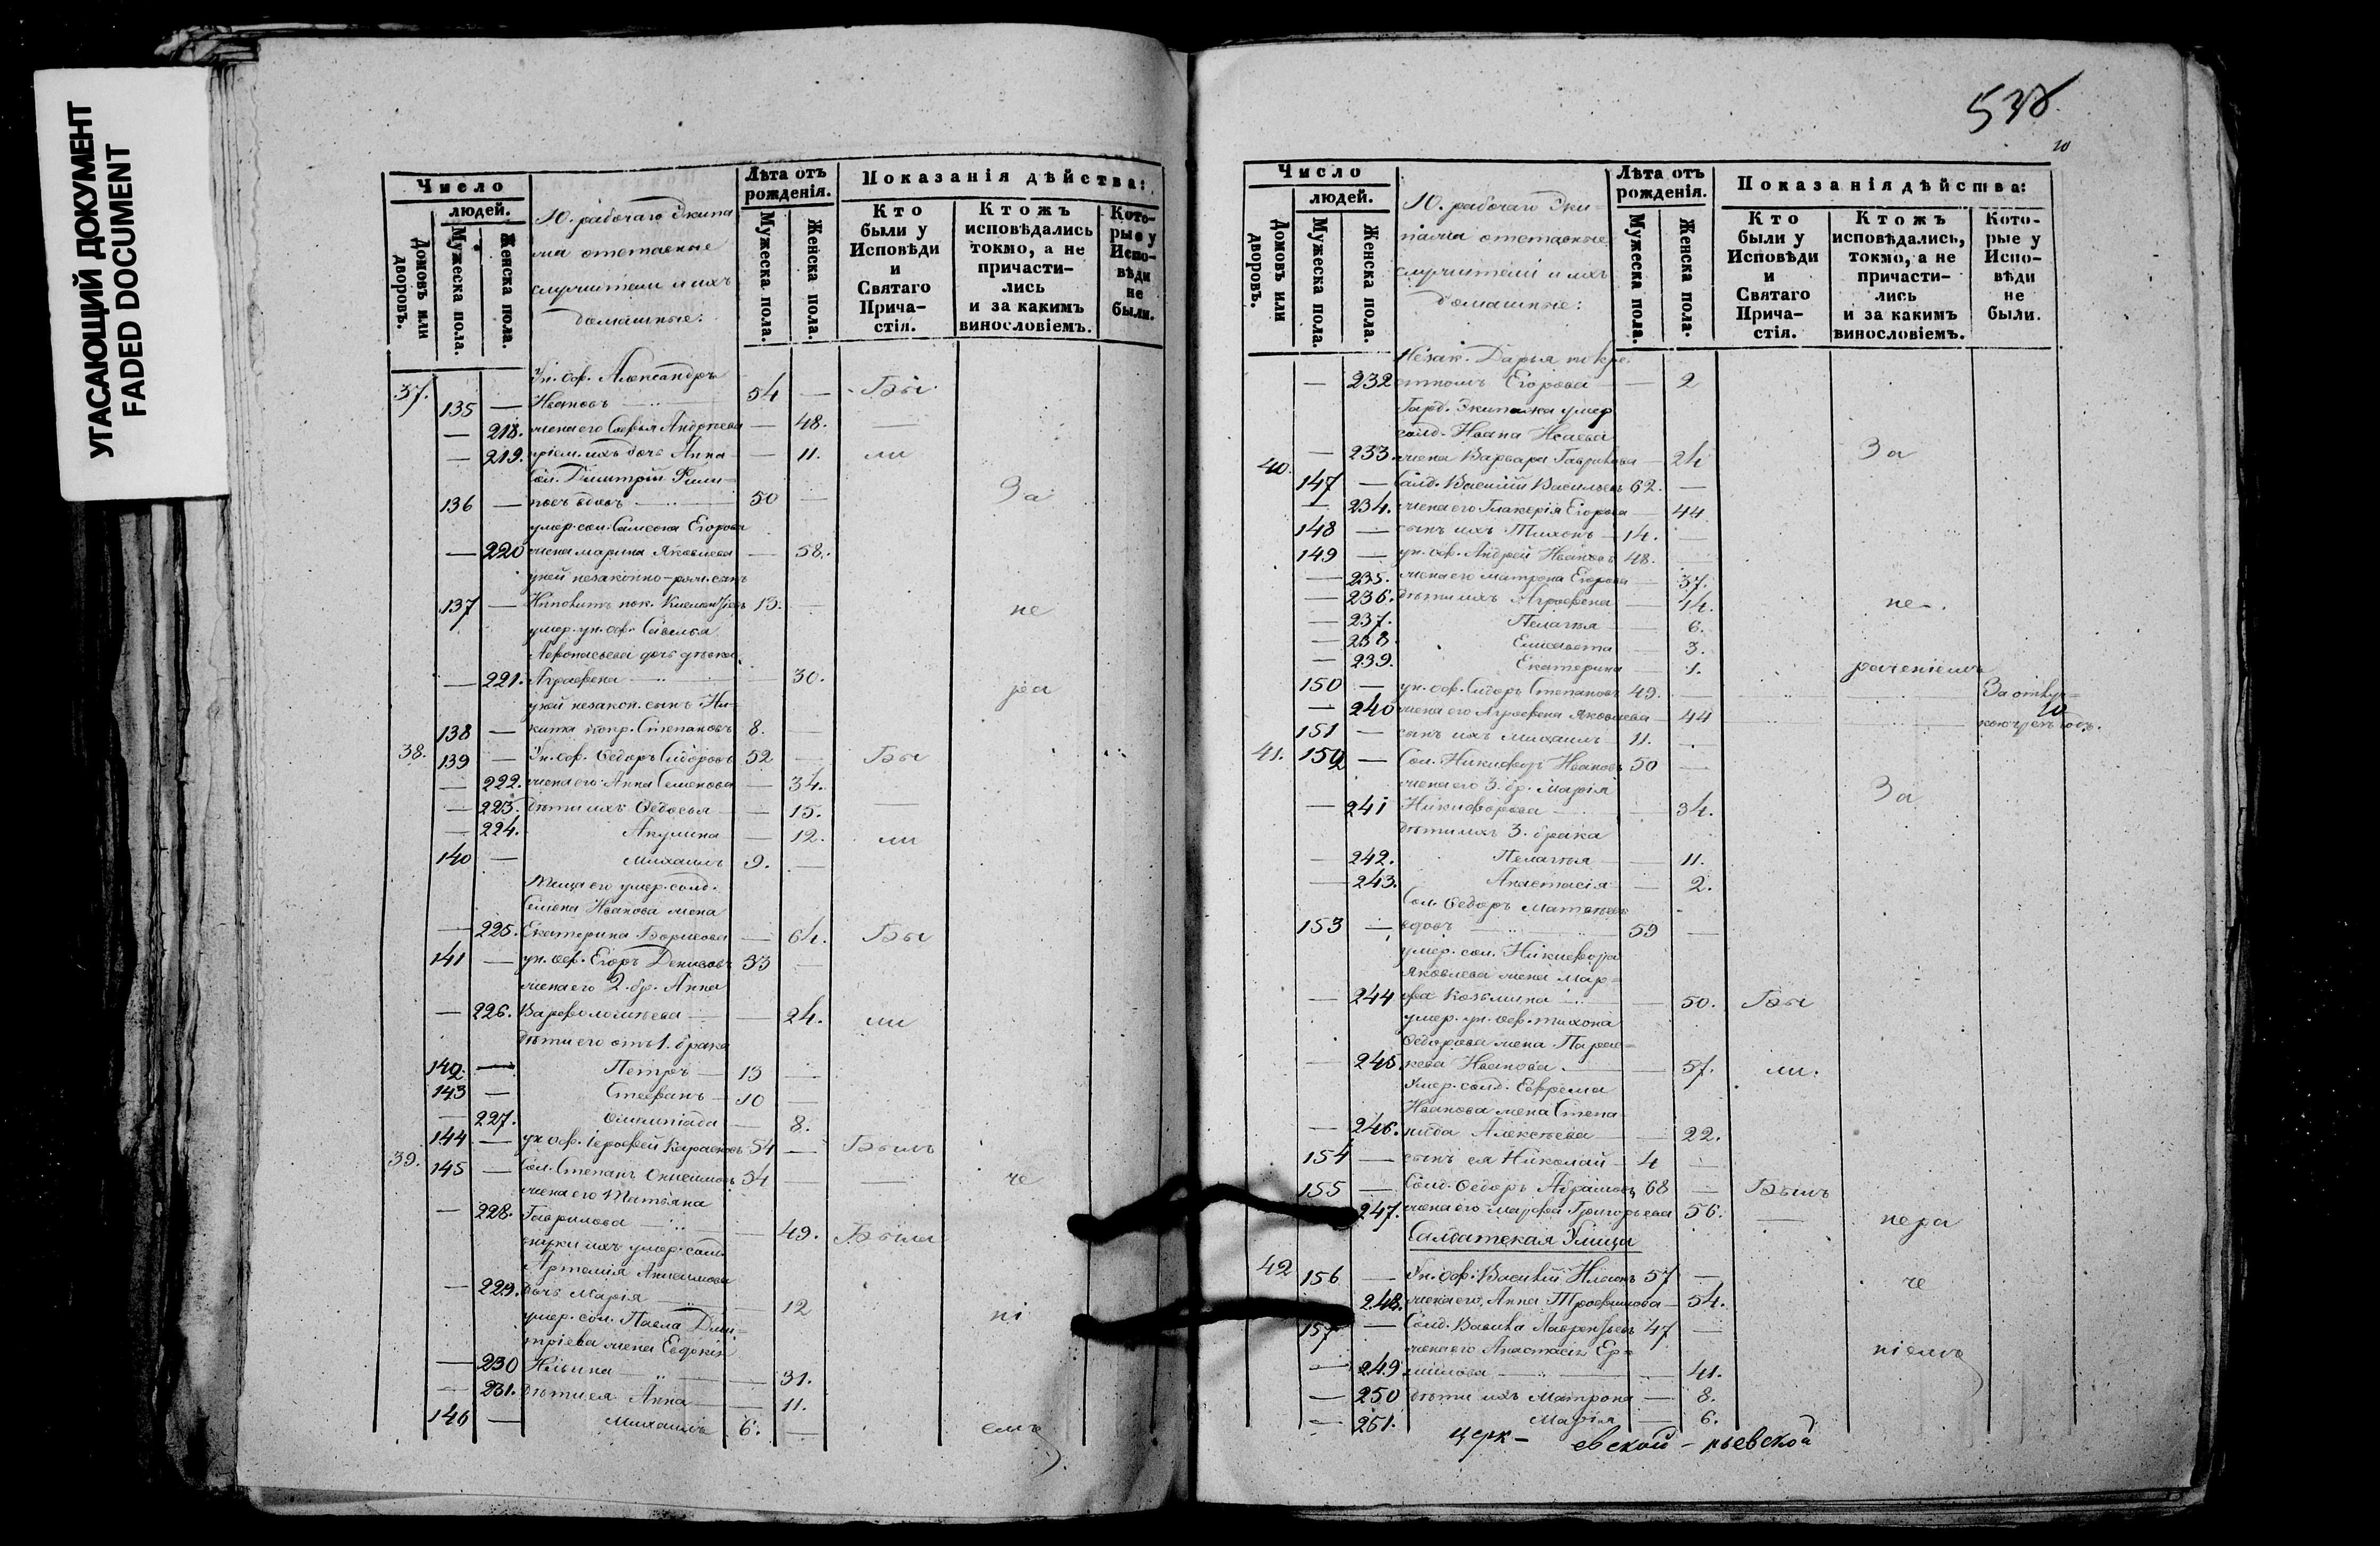 УГАСАЮЩИЙ ДОКУМЕНТ
FADED DOCUMENT
Число
людей.
Домовъ или дворовъ.
Мужеска пола.
Женска пола.
10. рабочаго Экипа
жа отставные
служители и ихъ
домашные:
Лѣта отъ рожденія.
Мужеска пола.
Женска пола.
Показанія дѣйства:
Кто были у Исповѣди и Святаго Прича-стія.
Ктожъ исповѣдались токмо, а не причасти-лись и за какимъ винословіемъ.
Кото-рые у Испо-вѣди не были.
37. Ун. оф. Александръ
135 — Ивановъ 54 — Бы
— 218. жена его Софья Андреева — 48.
— 219. пріем. ихъ дочь Анна — 11. ли
Сол. Дмитрій Фили=
136 — повъ вдовъ 50 — За
умер. сол. Симеона Егорова
— 220 жена Марина Яковлева — 58.
у ней незаконно-рож. сынъ
137 — 13. — не
умер. ун. оф. Савелья
Афонасьева дочь девка
— 221. Аграфена — 30. ра
у ней незакон. сынъ Ни-
138 — кита Степановъ 8. —
38. 139 — Ун. оф. Ѳедоръ Сидоровъ 52 — Бы
— 222. жена его Анна Семенова — 34.
— 223. дѣти ихъ Ѳедосья — 15.
— 224. Акулина — 12. ли
140 — Михаилъ 9. —
Теща его умер. солд.
Семена Иванова жена
— 225. Екатерина Борисова — 64. Бы
141 — ун. оф. Егоръ Денисовъ 33 —
жена его 2. бр. Анна
— 226. Варфоломеева — 24. ли
дѣти его отъ 1. брака
142. — Петръ 13 —
143 — Стефанъ 10 —
— 227. Олимпіада — 8.
144 — ун. оф. Іерофей 54 — Былъ
39. 145 — Сол. Степанъ Онисимовъ 54 — че
жена его Татьяна
— 228. Гаврилова — 49. Была
внуки ихъ умер. солд.
Артемія Анисимова
— 229. дочь Марія — 12 ні
умер. сол. Павла Дми=
тріева жена Евдокія
— 230 Ильина — 31.
— 231. дѣти ея Анна — 11.
146 — Михаилъ 6. — емъ
538
10
Число
людей.
Домовъ или дворовъ.
Мужеска пола.
Женска пола.
10. рабочаго Эки=
пажа отставные
служители и ихъ
домашные:
Лѣта отъ рожденія.
Мужеска пола.
Женска пола.
Показанія дѣйства:
Кто были у Исповѣди и Святаго Прича-стія.
Ктожъ исповѣдались, токмо, а не причасти-лись и за какимъ винословіемъ.
Кото-рые у Испо-вѣди не были.
Незак. Дарья по кре
— 232 Егорова — 2
Гард. Экипажа умер
солд. Ивана Исаева
— 233. жена Варвара Гаврилова — 24 За
40. 147 — Солд. Василій Васильевъ 62. —
— 234. жена его Гликерія Егорова — 44
148 — сынъ ихъ Тихонъ 14. —
149 — ун. оф. Андрей Ивановъ 48. —
— 235. жена его Матрона Егорова — 37.
— 236. дѣти ихъ Аграфена — 14. не-
— 237. Пелагея — 6.
— 238. Елисавета — 3.
— 239. Екатерина — 1. раченіемъ
150 — ун. оф. Сидоръ Степановъ 49. — За отлуч=
— 240 жена его Аграфена Яковлева — 44
151 — сынъ ихъ Михаилъ 11. —
41. 152 — Сол. Никифоръ Ивановъ 50 —
жена его 3. бр. Марія
— 241 Никифорова — 34. За
дѣти ихъ 3. брака
— 242. Пелагея — 11.
— 243. Анастасія — 2.
Сол. Ѳедоръ Матвѣевъ
153 — вдовъ 59 —
умер. сол. Никифора
Яковлева жена Мар=
— 244 ѳа Козьмина — 50. Бы
умер. ун. оф. Тихона
Ѳедорова жена Парас=
— 245. кева Иванова — 57. ли.
Умер. солд. Ефрема
Иванова жена Степа
— 246. нида Алексѣева — 22.
154 — сынъ ея Николай 4 —
155 — Солд. Ѳедоръ Абрамовъ 68 — Былъ
— 247. жена его Марѳа Григорьева 56. — нера
Салдатская Улица
42 156 — Ун. оф. Василій 57 — че
248. жена его Анна Трофимова — 54.
157 — Солд. Лаврентьевъ 47 —
жена его Анастасія Ер=
— 249 милова — 41. ніемъ
— 250 дѣти ихъ Матрона — 8.
— 251. Марія — 6.
церк- евской - рьевской